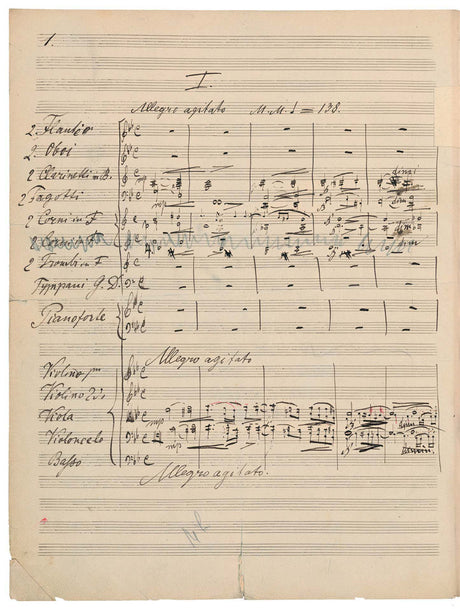 1.
I.
Allegro agitato M.M. = 138.
2. Flauto
2. Oboi
2 Clarinetti in B.
2 Fagotti
2 Corni in F
2 Trombi in F
Tympani G. D.
Pianoforte
mp
dim
dim
Allegro agitato
Violino
Violino 2do
Viola
Violoncelo
Basso
mp
mp
dim
Allegro agitato.